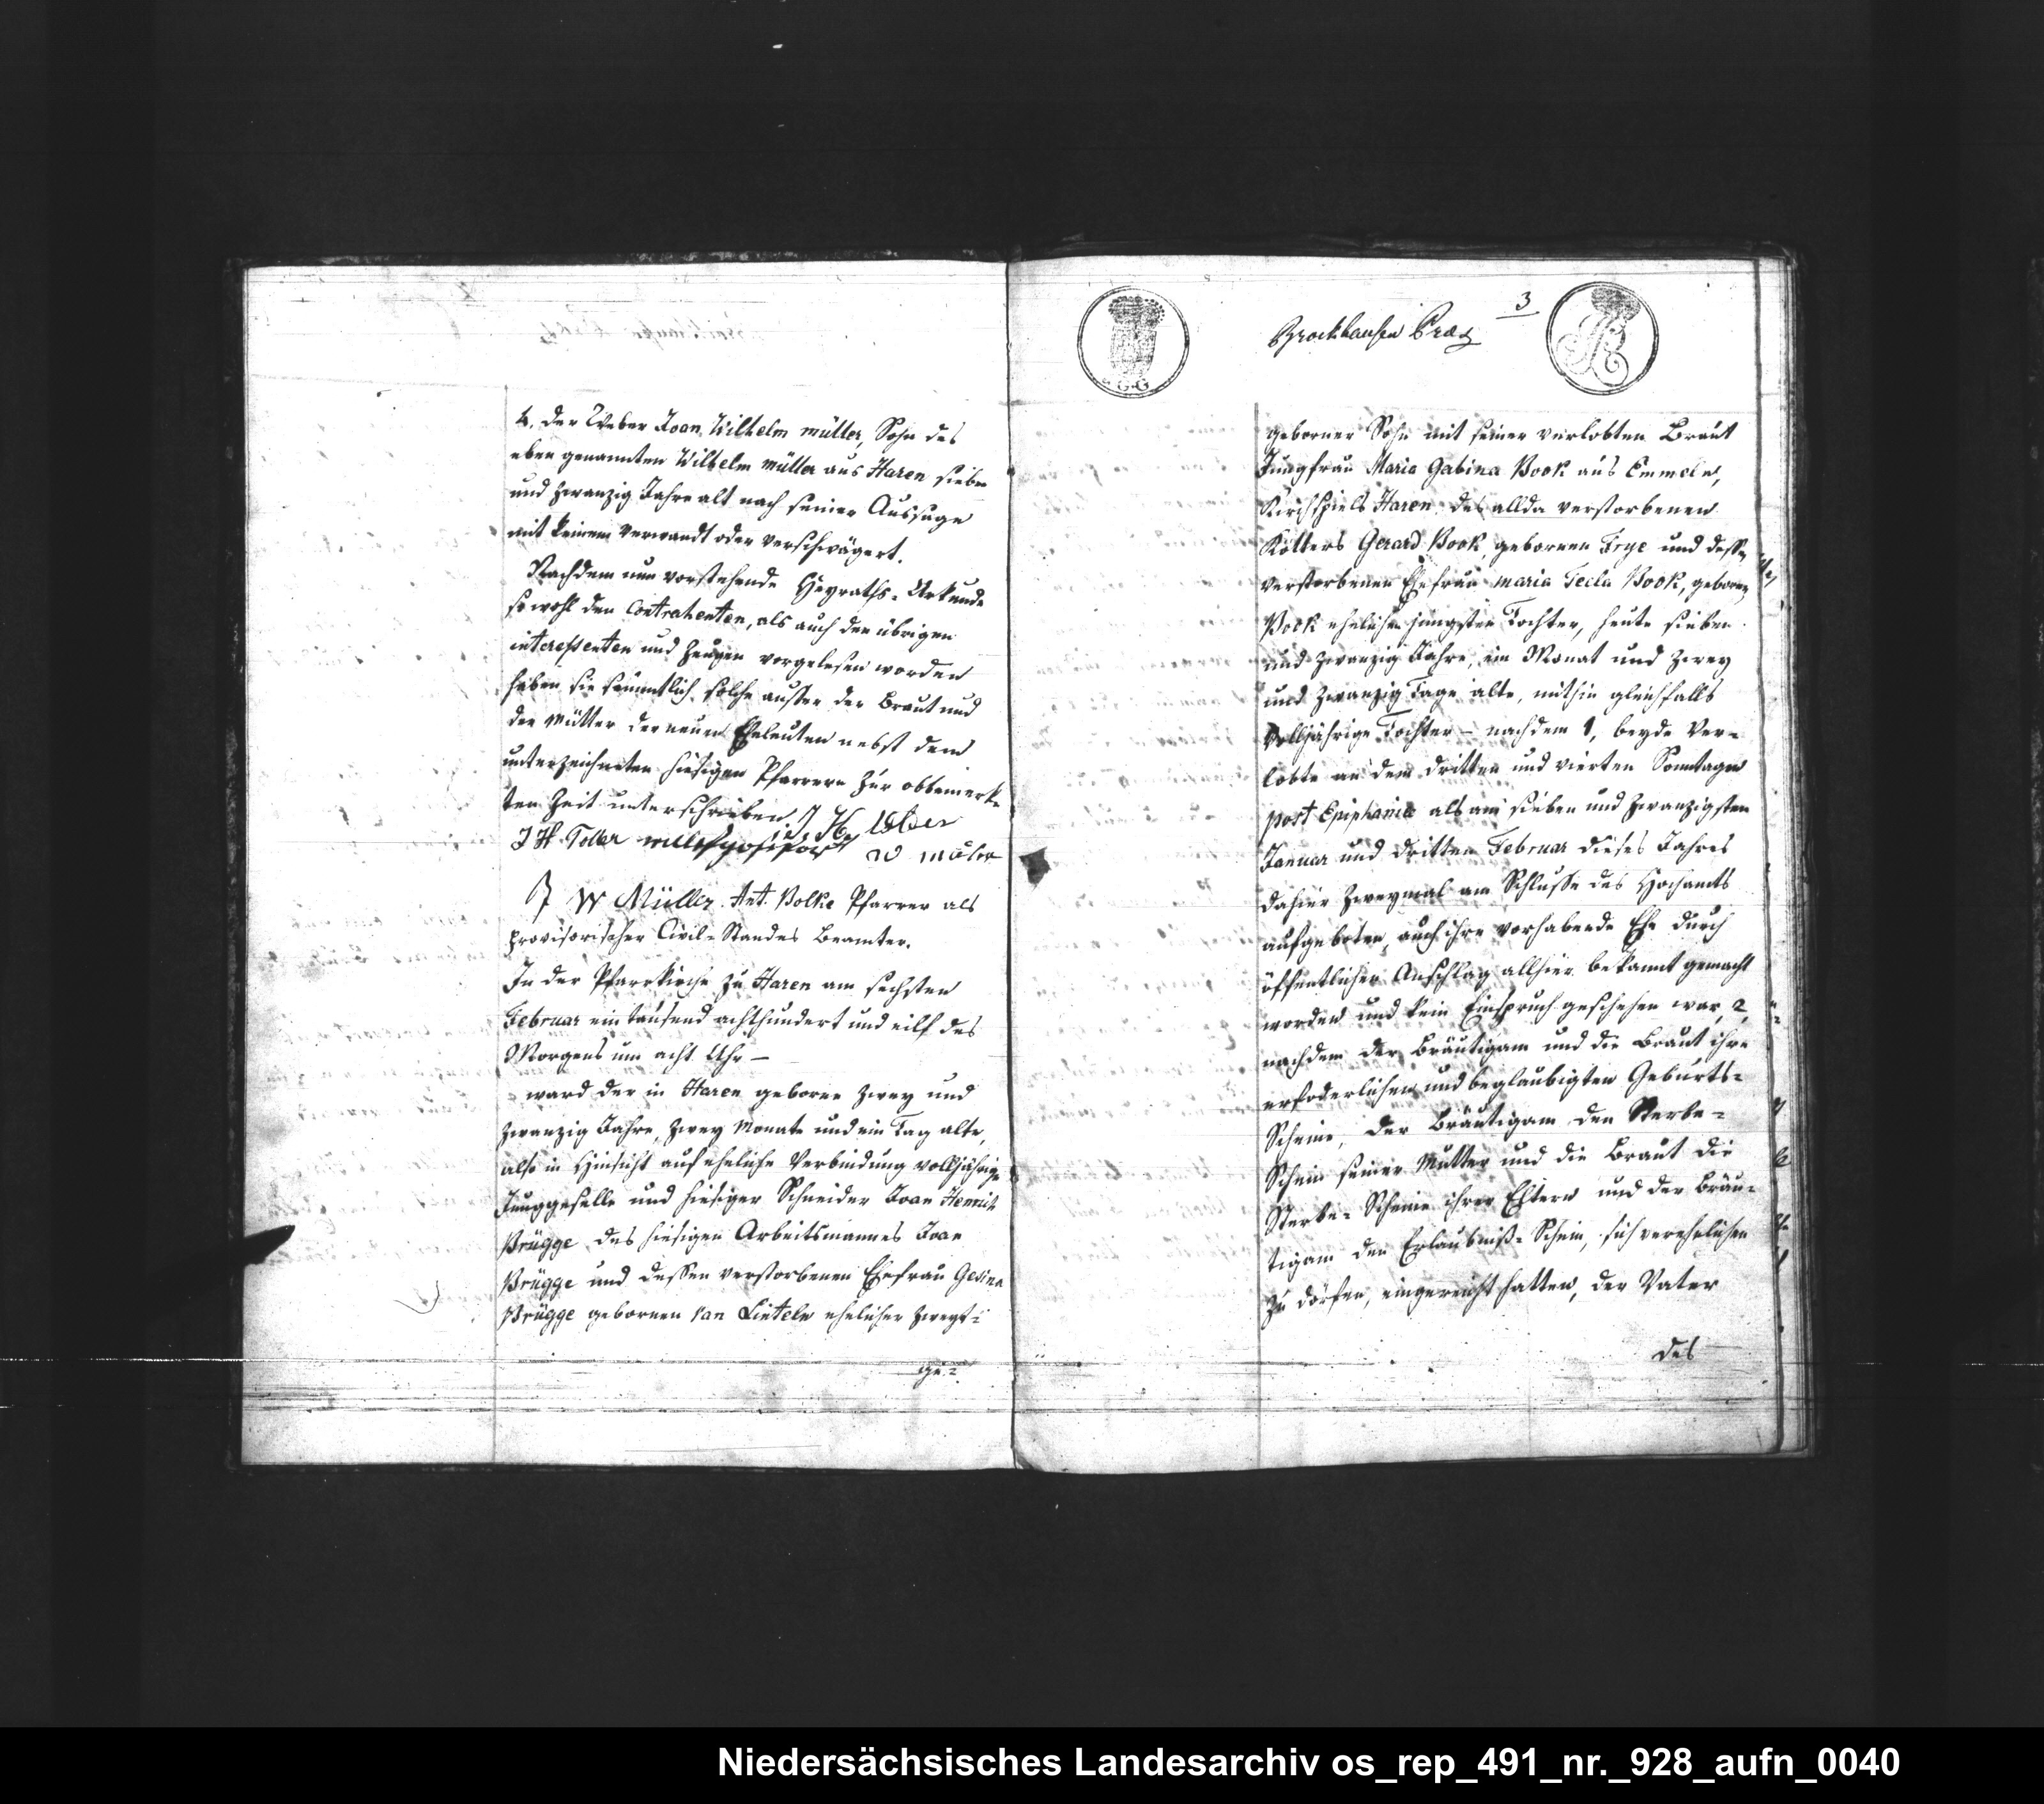 4. der Weber Joan Wilhelm müller, Sohn des
eben genannten Wilhelm müller aus Haren sieben
und zwanzig Jahre alt nach seiner Aussage
mit keinem verwandt oder verschwägert.
Nachdem nun vorstehende Heyraths-Urkunde
sowohl den Contrahenten, als auch den übrigen
interessenten und Zeugen vorgelesen worden
haben sie sämmtlich solche ausser der Braut und
der Mütter der neuen Eheleuten nebst dem
unterzeichneten hiesigen Pfarrern zur obbemerk-
ten Zeit unterschrieben J H
J H
W müler
J W Müller. Ant. Bolke Pfarrer als
provisorischer Civil-Standes Beamter.
In der Pfarrkirche zu Haren am sechsten
Februar ein tausend achthundert und eilf des
Morgens um acht Uhr —
ward der in Haren geborne zwey und
zwanzig Jahre, zwey Monate und ein Tag alte,
also in Hinsicht auf eheliche Verbindung volljährige
Junggeselle und hiesiger Schneider Joan Henrich
Brügge, des hiesigen Arbeitsmannes Joan
Brügge und dessen verstorbenen Ehefrau Gesina
Brügge gebornen van Linteln ehelicher zweyt-
ge-
3
Brockhausen
geborner Sohn mit seiner verlobten Braut
Jungfrau Maria Gabina Book aus Emmeln,
Kirchspiels Haren, des allda verstorbenen
Kötters Gerard Book, gebornen Frye und dessen
verstorbenen Ehefrau maria Tecla Book, gebornen
Book ehelichen jüngsten Tochter, heute sieben
und zwanzig Jahre, ein Monat und zwey
und zwanzig Tage alte, mithin gleichfalls
volljährige Tochter – nachdem 1, beyde Ver-
lobte an dem dritten und vierten Sonntagen
post Epiphaniae als am sieben und zwanzigsten
Januar und dritten Februar dieses Jahres
dahier zweymal am Schlusse des Hochamts
aufgeboten, auch ihre vorhabende Ehe durch
öffentlichen Anschlag allhier bekannt gemacht
worden und kein Einspruch geschehen war, 2,
nachdem der Bräutigam und die Braut ihre
erfoderlichen und beglaubigten Geburts-
Scheine, der Bräutigam den Sterbe-
Schein seiner Mutter und die Braut die
Sterbe-Scheine ihrer Eltern und der Bräu-
tigam den Erlaubniß-Schein, sich verehelichen
zu dörfen, eingereicht hatten, der Vater
des
Niedersächsisches Landesarchiv os_rep_491_nr._928_aufn_0040